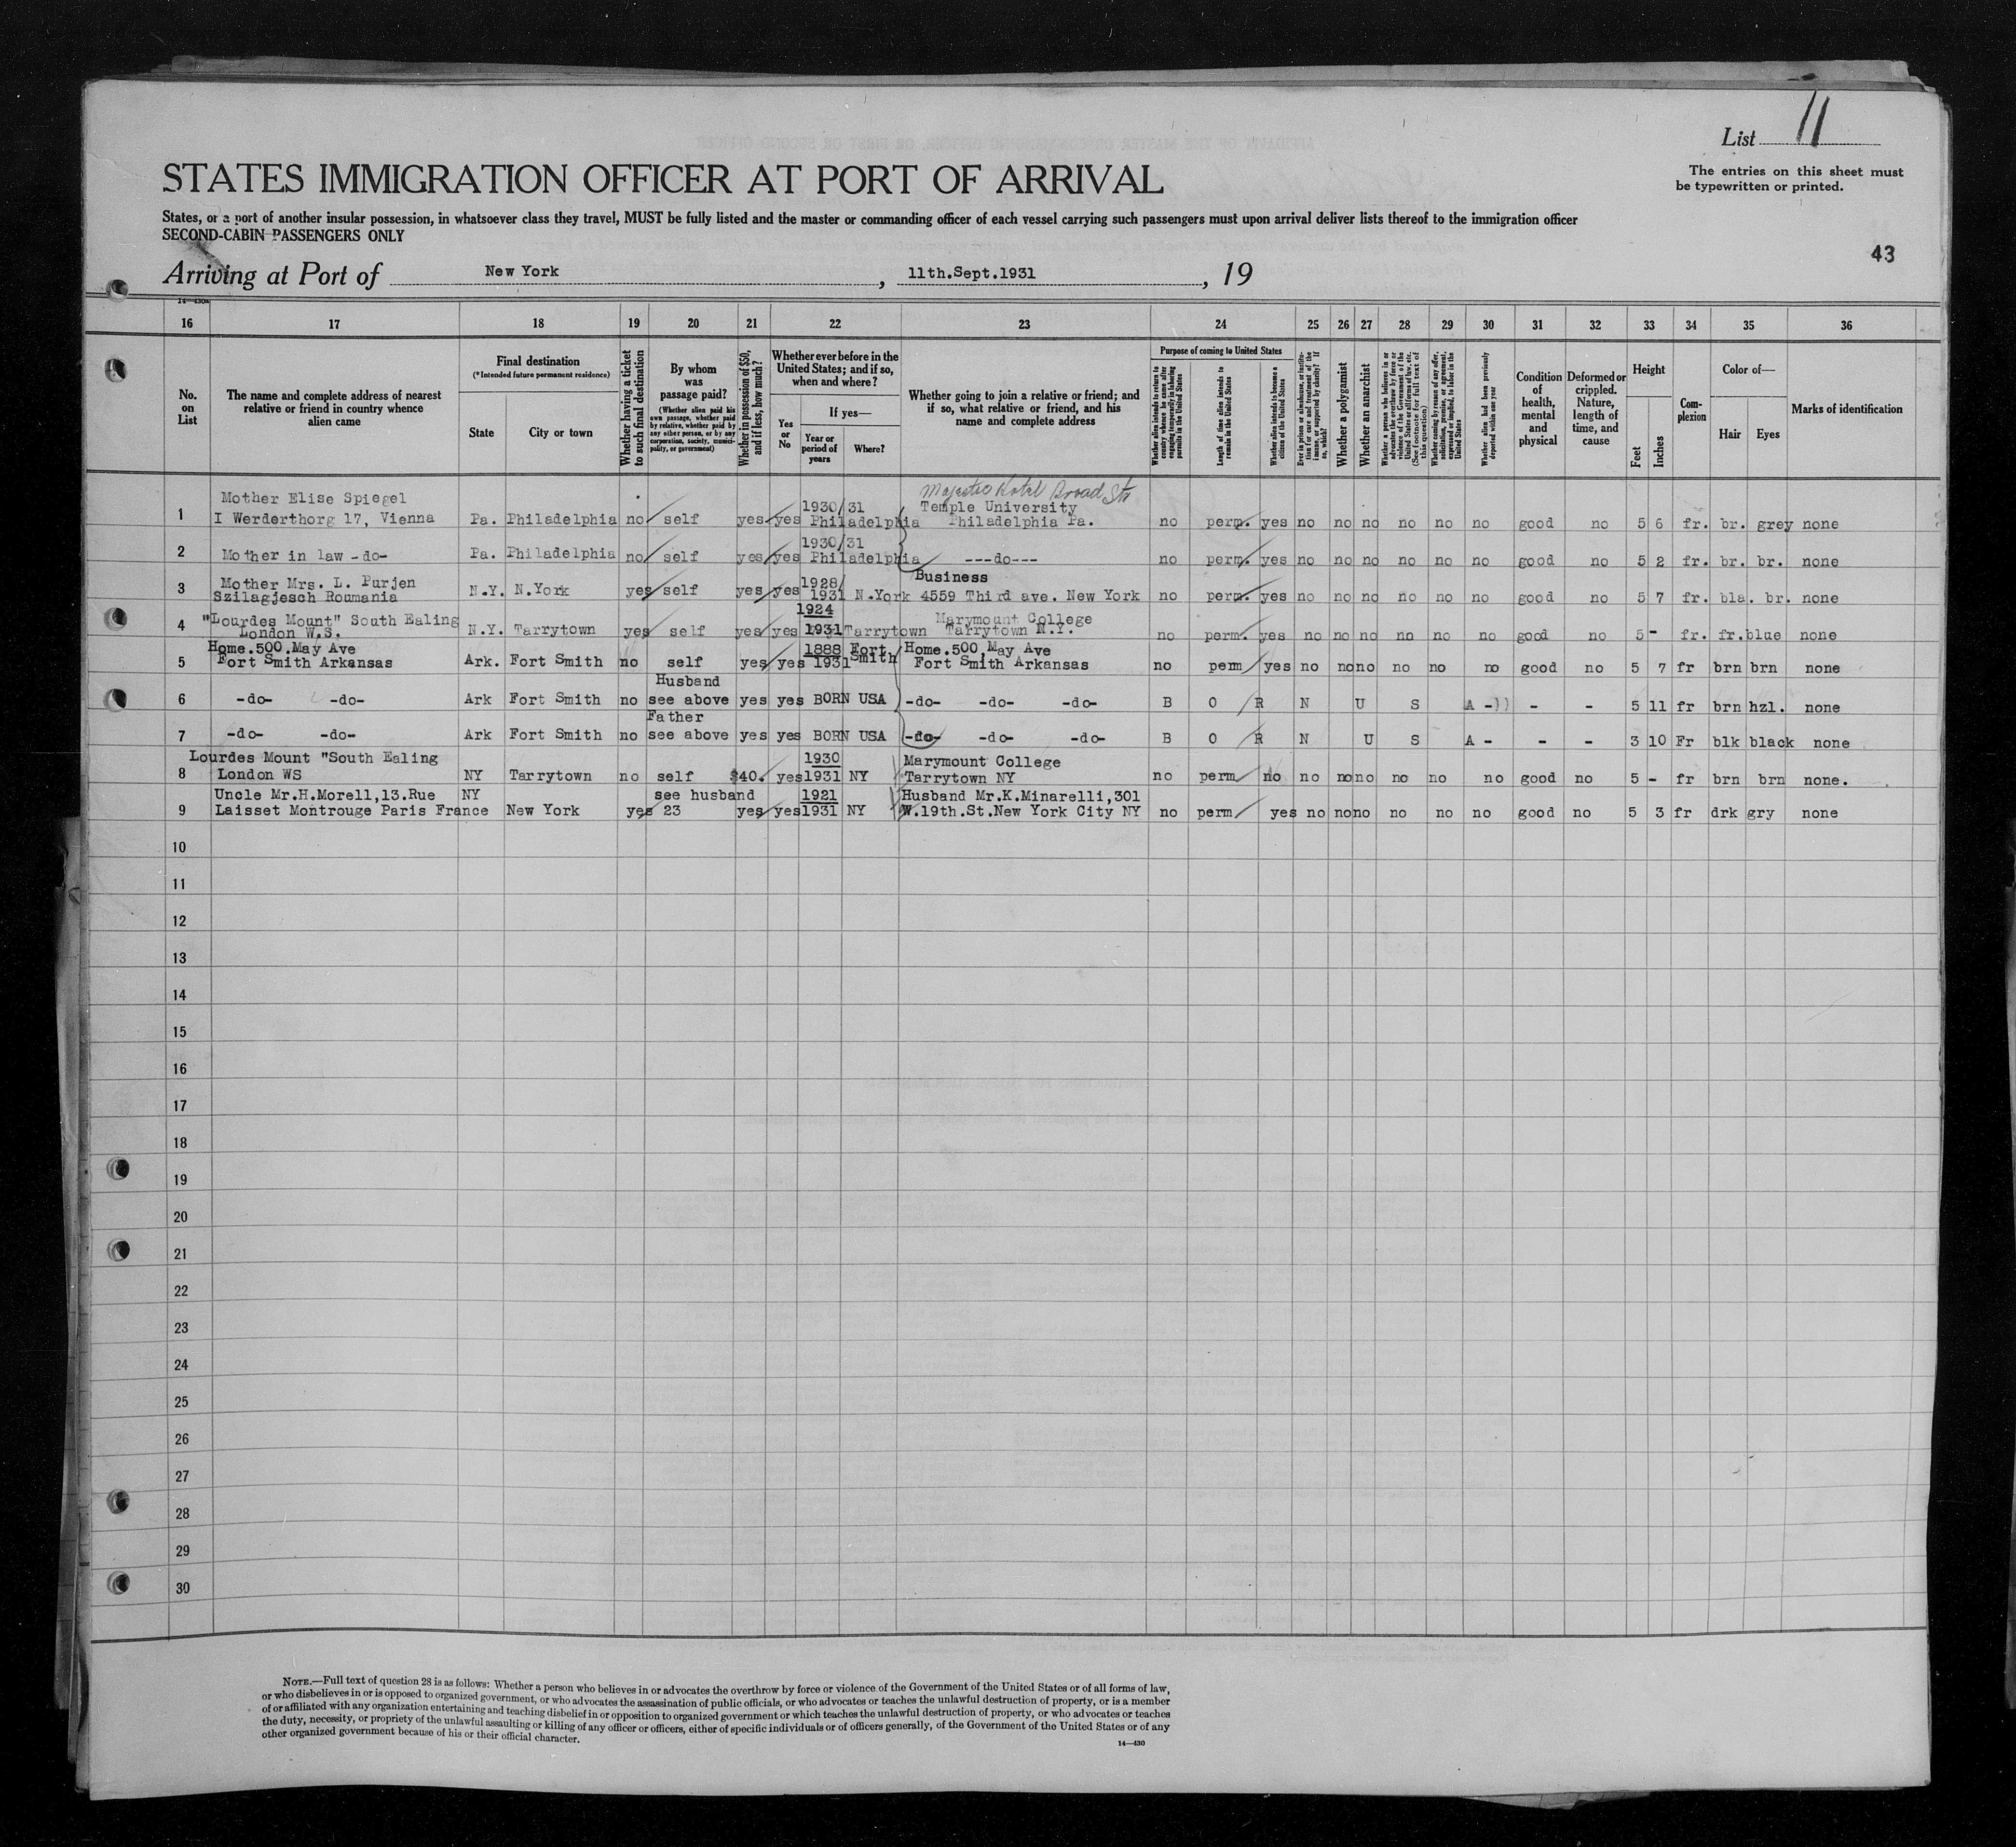 List 11
The entries on this sheet must
be typewritten or printed.
STATES IMMIGRATION OFFICER AT PORT OF ARRIVAL
States, or a port of another insular possession, in whatsoever class they travel, MUST be fully listed and the master or commanding officer of each vessel carrying such passengers must upon arrival deliver lists thereof to the immigration officer
SECOND-CABIN PASSENGERS ONLY
43
Arriving at Port of New York, 11th.Sept.1931, 19
14—430a
16 17 18 19 20 21 22 23 24 25 26 27 28 29 30 31 32 33 34 35 36
No. on List
The name and complete address of nearest relative or friend in country whence alien came
Final destination
(*Intended future permanent residence)
State
City or town
Whether having a ticket to such final destination
By whom was passage paid?
(Whether alien paid his own passage, whether paid by relative, whether paid by any other person, or by any corporation, society, municipality, or government)
Whether in possession of $50, and if less, how much?
Whether ever before in the United States; and if so, when and where?
Yes or No
If yes—
Year or period of years
Where?
Whether going to join a relative or friend; and if so, what relative or friend, and his name and complete address
Purpose of coming to United States
Whether alien intends to return to country whence he came after engaging temporarily in laboring pursuits in the United States
Length of time alien intends to remain in the United States
Whether alien intends to become a citizen of the United States
Ever in prison or almshouse, or institution for care and treatment of the insane, or supported by charity? If so, which?
Whether a polygamist
Whether an anarchist
Whether a person who believes in or advocates the overthrow by force or violence of the Government of the United States or all forms of law, etc. (See footnote for full text of this question)
Whether coming by reason of any offer, solicitation, promise, or agreement, expressed or implied, to labor in the United States
Whether alien had been previously deported within one year
Condition of health, mental and physical
Deformed or crippled. Nature, length of time, and cause
Height
Feet
Inches
Complexion
Color of—
Hair
Eyes
Marks of identification
Majestic Hotel Broad Str
Mother Elise Spiegel 1930/31 Temple University
1 I Werderthorg 17, Vienna Pa. Philadelphia no self yes yes Philadelphia Philadelphia Pa. no perm. yes no no no no no no good no 5 6 fr. br. grey none
1930/31
2 Mother in law -do- Pa. Philadelphia no self yes yes Philadelphia ---do--- no perm. yes no no no no no no good no 5 2 fr. br. br. none
Mother Mrs. L. Purjen 1928/ Business
3 Szilagjesch Roumania N.Y. N.York yes self yes yes 1931 N.York 4559 Third ave. New York no perm. yes no no no no no no good no 5 7 fr. bla. br. none
"Lourdes Mount" South Ealing 1924 Marymount College
4 London W.S. N.Y. Tarrytown yes self yes yes 1931 Tarrytown Tarrytown N.Y. no perm. yes no no no no no no good no 5 - fr. fr. blue none
Home.500.May Ave 1888 Fort Home.500.May Ave
5 Fort Smith Arkansas Ark. Fort Smith no self yes yes 1931 Smith Fort Smith Arkansas no perm yes no no no no no no good no 5 7 fr brn brn none
Husband
6 -do- -do- Ark Fort Smith no see above yes yes BORN USA -do- -do- -do- B O R N U S A - - - 5 11 fr brn hzl. none
Father
7 -do- -do- Ark Fort Smith no see above yes yes BORN USA -do- -do- -do- B O R N U S A - - - 3 10 Fr blk black none
Lourdes Mount "South Ealing 1930 Marymount College
8 London WS NY Tarrytown no self $40. yes 1931 NY Tarrytown NY no perm no no no no no no no good no 5 - fr brn brn none.
Uncle Mr.H.Morell,13.Rue NY see husband 1921 Husband Mr.K.Minarelli,301
9 Laisset Montrouge Paris France New York yes 23 yes yes 1931 NY W.19th.St.New York City NY no perm yes no no no no no no good no 5 3 fr drk gry none
10
11
12
13
14
15
16
17
18
19
20
21
22
23
24
25
26
27
28
29
30
NOTE.—Full text of question 28 is as follows: Whether a person who believes in or advocates the overthrow by force or violence of the Government of the United States or of all forms of law,
or who disbelieves in or is opposed to organized government, or who advocates the assassination of public officials, or who advocates or teaches the unlawful destruction of property, or is a member
of or affiliated with any organization entertaining and teaching disbelief in or opposition to organized government or which teaches the unlawful destruction of property, or who advocates or teaches
the duty, necessity, or propriety of the unlawful assaulting or killing of any officer or officers, either of specific individuals or of officers generally, of the Government of the United States or of any
other organized government because of his or their official character.
14—430